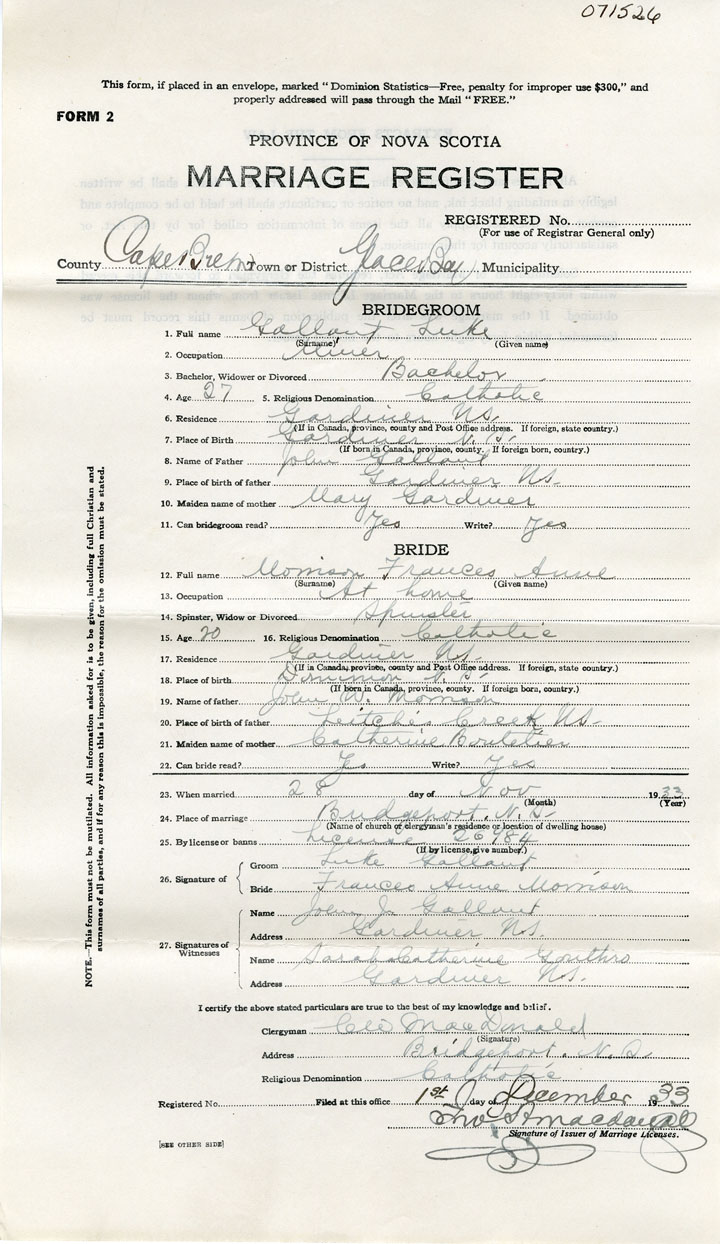 071526
This form, if placed in an envelope, marked "Dominion Statistics—Free, penalty for improper use $300," and
properly addressed will pass through the Mail "FREE."
FORM 2
PROVINCE OF NOVA SCOTIA
MARRIAGE REGISTER
REGISTERED No.
(For use of Registrar General only)
County Cape Breton Town or District Glace Bay Municipality
BRIDEGROOM
1. Full name Gallant Luke
(Surname) (Given name)
2. Occupation Miner
3. Bachelor, Widower or Divorced Bachelor
4. Age 27 5. Religious Denomination Catholic
6. Residence Gardiner N.S.
(If in Canada, province, county and Post Office address. If foreign, state country.)
7. Place of Birth Gardiner N.S.
(If born in Canada, province, county. If foreign born, country.)
8. Name of Father John Gallant
9. Place of birth of father Gardiner N.S.
10. Maiden name of mother Mary Gardiner
11. Can bridegroom read? Yes Write? Yes
BRIDE
12. Full name Morrison Frances Anne
(Surname) (Given name)
13. Occupation At home
14. Spinster, Widow or Divorced Spinster
15. Age 20 16. Religious Denomination Catholic
17. Residence Gardiner N.S.
(If in Canada, province, county and Post Office address. If foreign, state country.)
18. Place of birth Dominion N.S.
(If born in Canada, province, county. If foreign born, country.)
19. Name of father John W. Morrison
20. Place of birth of father Leitches Creek N.S.
21. Maiden name of mother Catherine
22. Can bride read? Yes Write? Yes
23. When married 28 day of Nov 1933
(Month) (Year)
24. Place of marriage Bridgeport, N.S.
(Name of church or clergyman's residence or location of dwelling house)
25. By license or banns License 26784
(If by license, give number.)
26. Signature of
Groom Luke Gallant
Bride Frances Anne Morrison
27. Signatures of Witnesses
Name John J. Gallant
Address Gardiner N.S.
Name Sarah Catherine Gouthro
Address Gardiner N.S.
I certify the above stated particulars are true to the best of my knowledge and belief.
Clergyman MacDonald
(Signature)
Address Bridgeport, N.S.
Religious Denomination Catholic
Registered No. Filed at this office 1st day of December 1933
Signature of Issuer of Marriage Licenses.
[SEE OTHER SIDE]
NOTE.—This form must not be mutilated. All information asked for is to be given, including full Christian and
surnames of all parties, and if for any reason this is impossible, the reason for the omission must be stated.